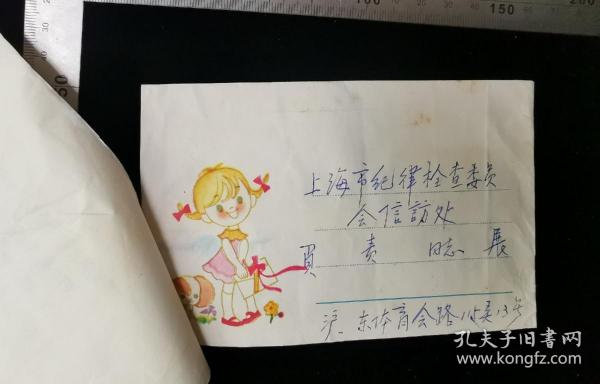 100
150
200
上海市纪律检查委员
会信访处
负 责 同志 展
沪. 东体育会路 弄13号
孔夫子旧书网
www.kongfz.com